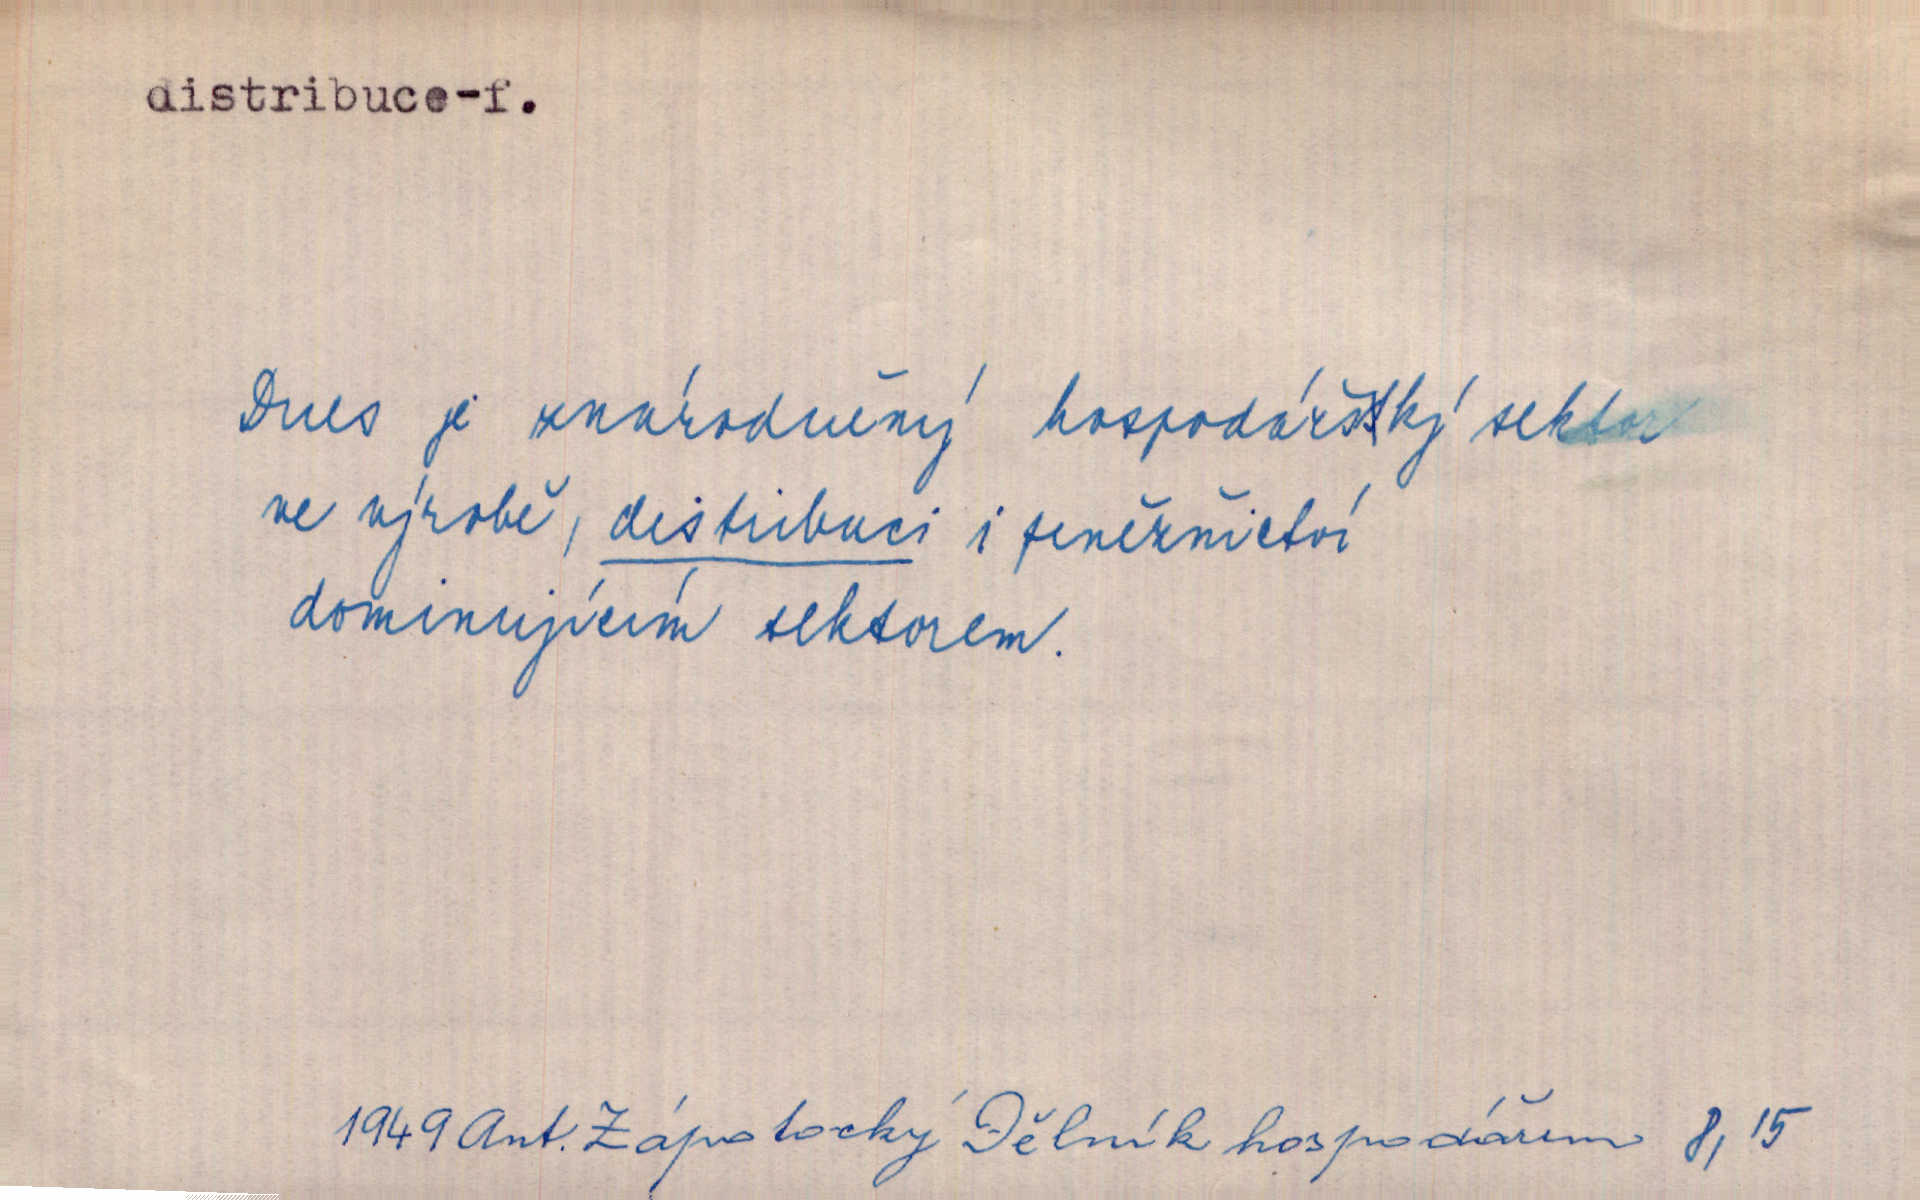 distribuce-f.
Dnes je znárodněný hospodářský sektor
ve výrobě, distribuci i peněžnictví
dominujícím sektorem.
1949 Ant. Zápotocký Dělník hospodářem 8, 15